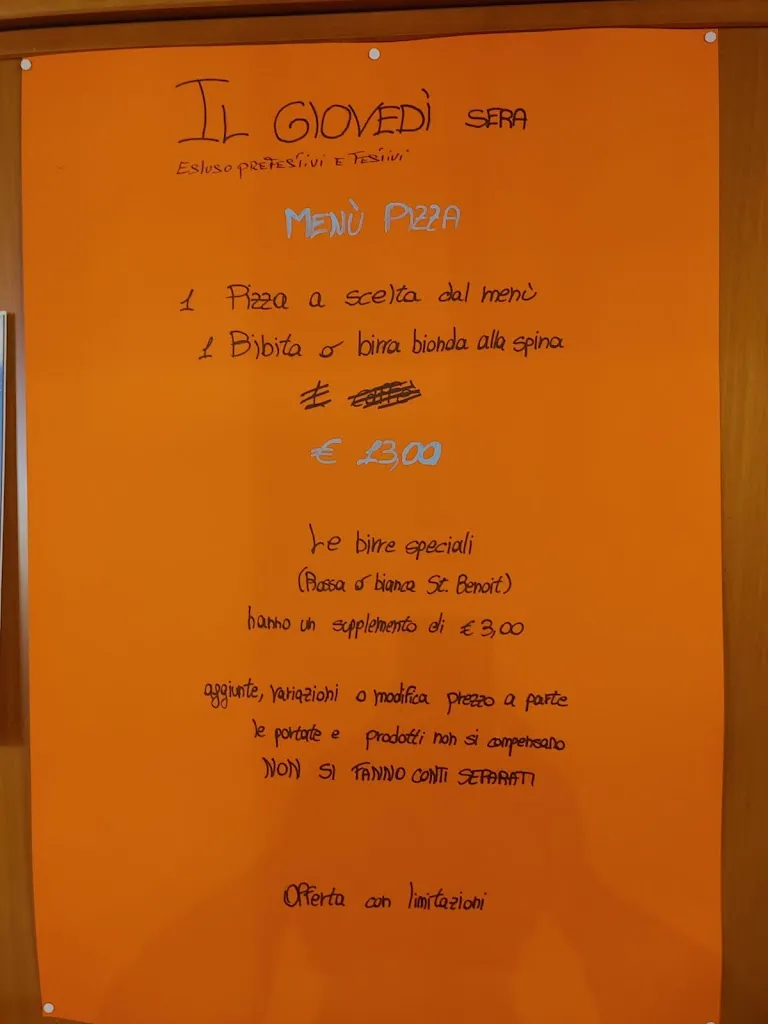 IL GIOVEDÌ SERA
ESLUSO PREFESTIVI E FESTIVI
MENÙ PIZZA
1 Pizza a scelta dal menù
1 Bibita o birra bionda alla spina
1 caffè
€ 13,00
Le birre speciali
(Rossa o bianca St. Benoit)
hanno un supplemento di € 3,00
aggiunte, variazioni o modifica prezzo a parte
le portate e prodotti non si compensano
NON SI FANNO CONTI SEPARATI
Offerta con limitazioni